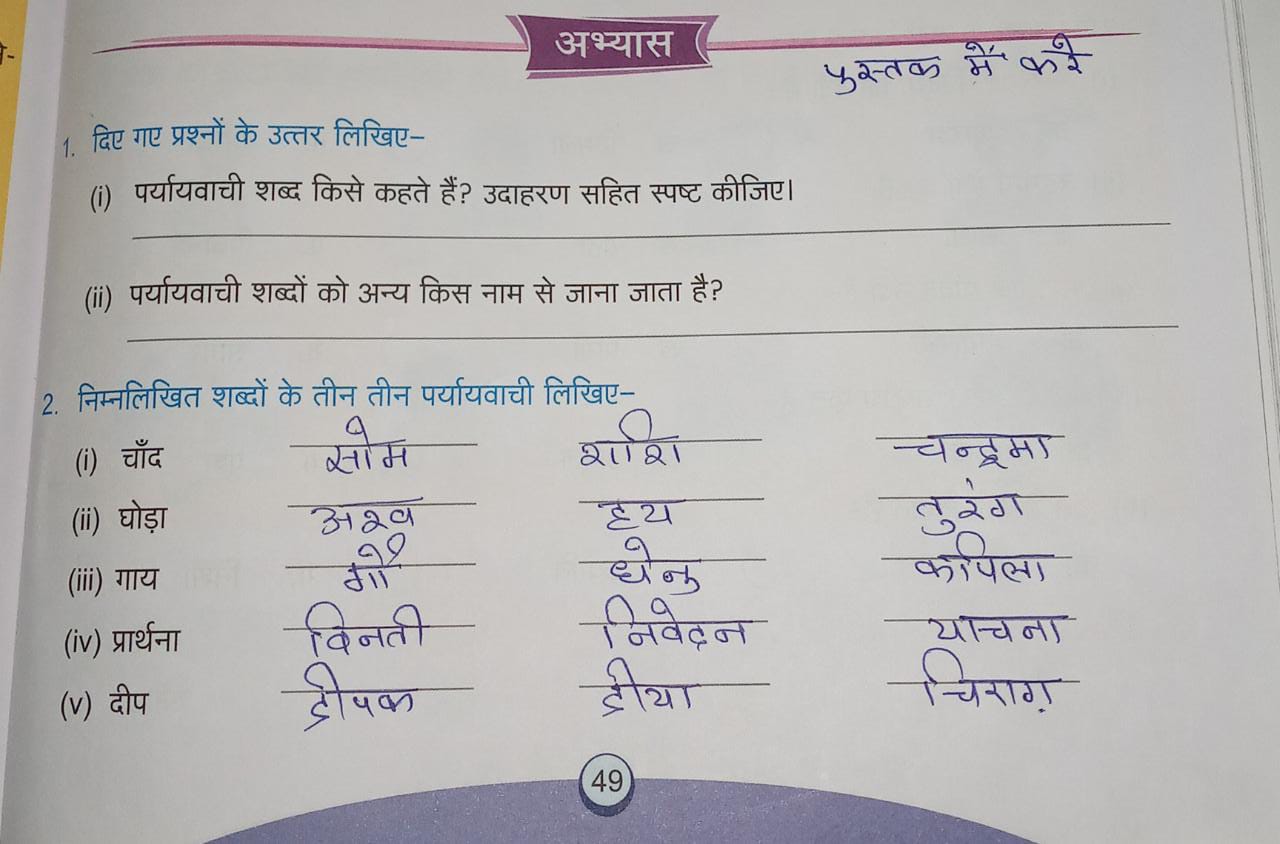 अभ्यास
पुस्तक में करे
1. दिए गए प्रश्नों के उत्तर लिखिए–
(i) पर्यायवाची शब्द किसे कहते हैं? उदाहरण सहित स्पष्ट कीजिए।
(ii) पर्यायवाची शब्दों को अन्य किस नाम से जाना जाता है?
2. निम्नलिखित शब्दों के तीन तीन पर्यायवाची लिखिए–
(i) चाँद सोम शशि चन्द्रमा
(ii) घोड़ा अश्व हय तुरंग
(iii) गाय गौ धेनु कपिला
(iv) प्रार्थना विनती निवेदन याचना
(v) दीप दीपक दीया चिराग़
49